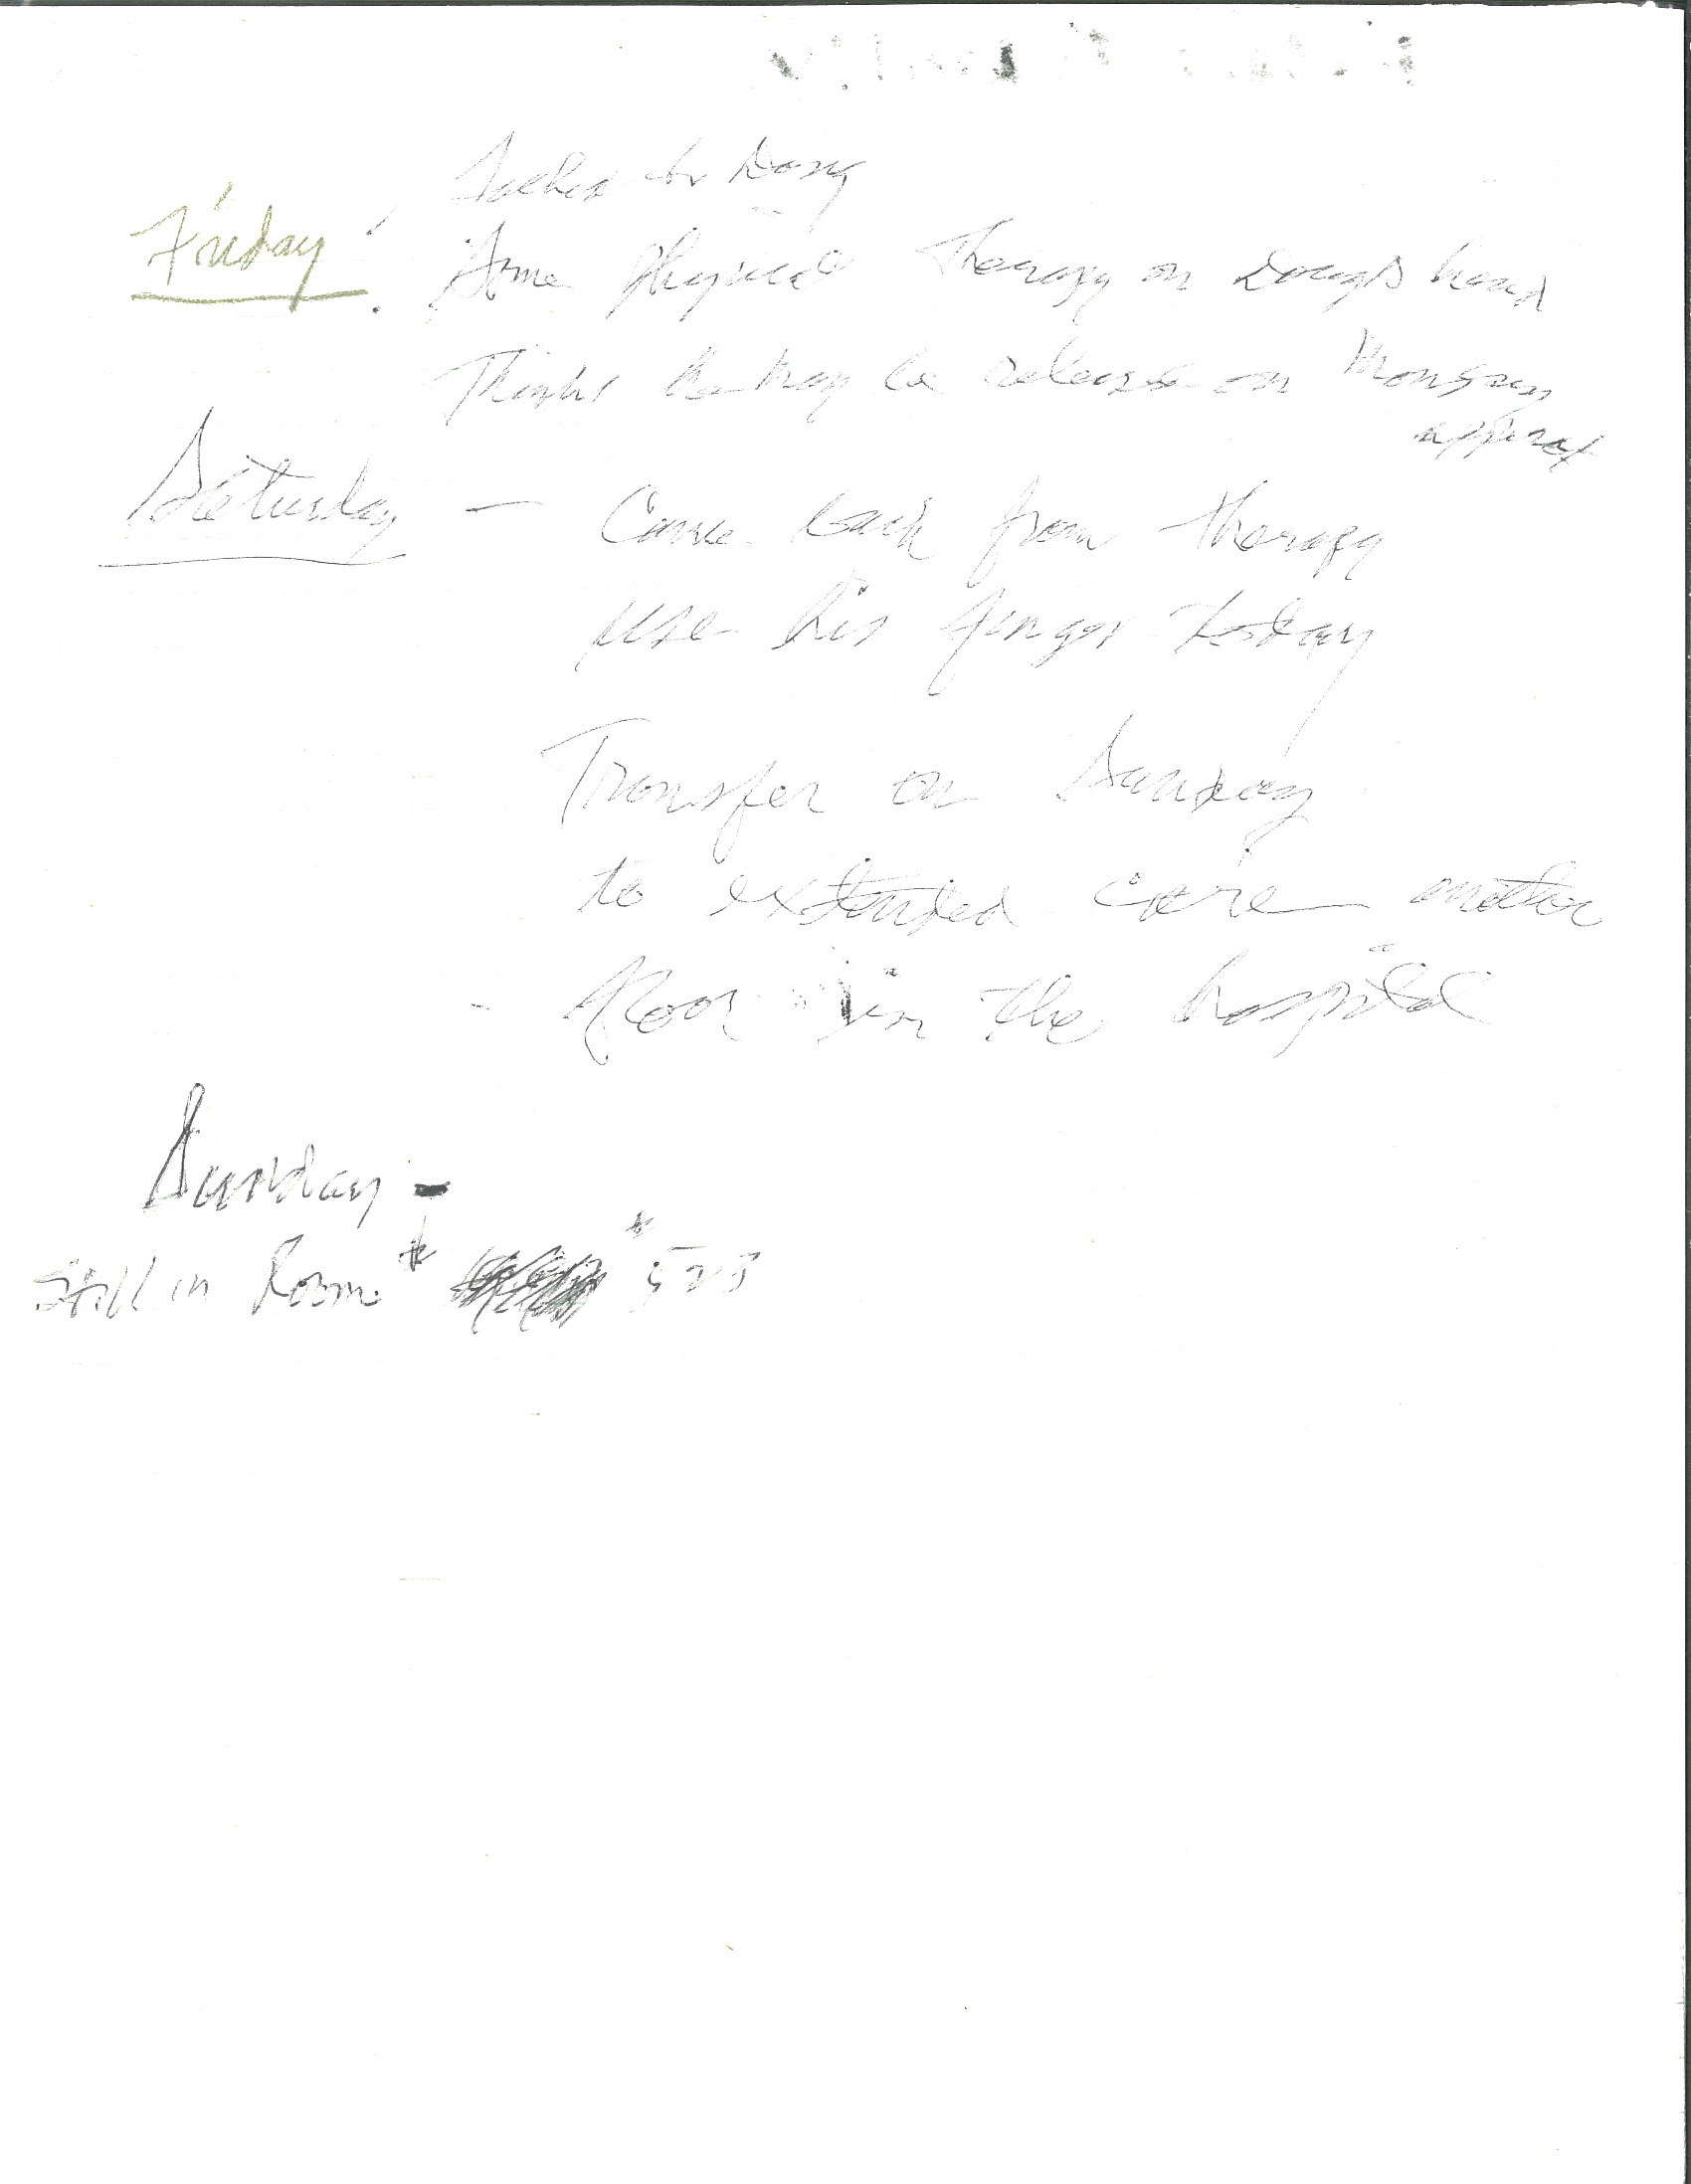 Friday: Talked to Doug
Some physical Therapy on Doug's hand
Thinks he may be release on Monday
approx
Saturday - Came back from therapy
use his fingers today
Transfer on Sunday
to extended care another
floor in the hospital
Sunday -
Still in Room # # 528